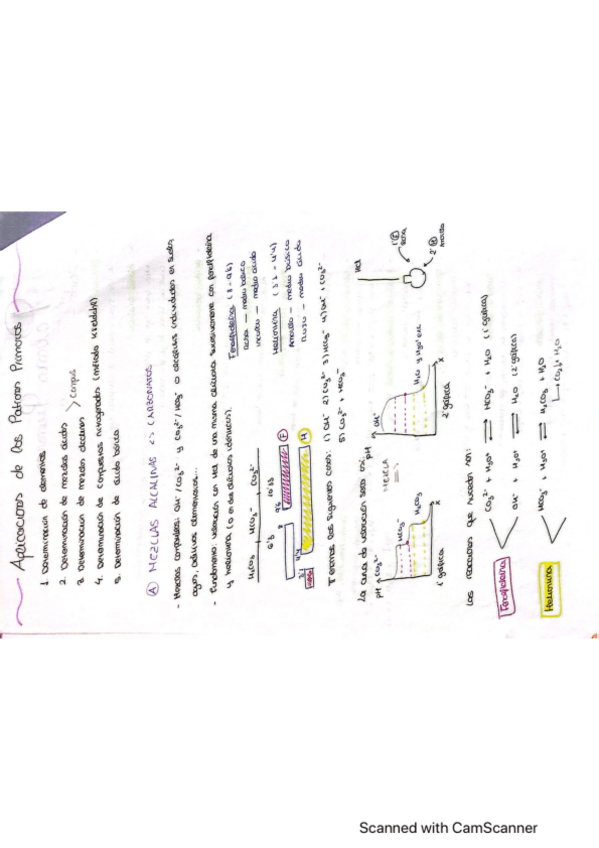 Aplicaciones de los Patrones Primarios
1. Determinación de
2. Determinación de mezclas ácidas
3. Determinación de mezclas alcalinas
4. Determinación de compuestos nitrogenados (método Kjeldahl)
5. Determinación de ácido bórico
Ⓐ MEZCLAS ALCALINAS <> CARBONATOS
- Mezclas compatibles: OH⁻/CO₃²⁻ y CO₃²⁻/HCO₃⁻ o alcalinos individuales en suelos
agros, aditivos alimentarios...
- Fundamento: valoración con HCl de una misma alícuota sucesivamente con fenolftaleína
y heliantina (o en dos alícuotas idénticas).
Fenolftaleína (8-9'6)
rosa - medio básico
incoloro - medio ácido
Heliantina (3'1 - 4'4)
Amarillo - medio básico
Rojo - medio ácido
H₂CO₃ HCO₃⁻ CO₃²⁻
6'3 10'33
8 9'6 Ⓕ
3'1 4'4 Ⓗ
Tenemos los siguientes casos: 1) OH⁻ 2) CO₃²⁻ 3) HCO₃⁻ 4) OH⁻ + CO₃²⁻
5) CO₃²⁻ + HCO₃⁻
La curva de valoración será así:
pH CO₃²⁻
HCO₃⁻
H₂CO₃
x
1ª gráfica
MEZCLA
pH
OH⁻
x
2ª gráfica
HCl
1º Ⓕ
rosa
2º Ⓗ
Amarillo
Las reacciones que suceden son:
Fenolftaleína
CO₃²⁻ + H₃O⁺ ⇌ HCO₃⁻ + H₂O (1ª gráfica)
OH⁻ + H₃O⁺ ⇌ H₂O (2ª gráfica)
Heliantina
HCO₃⁻ + H₃O⁺ ⇌ H₂CO₃ + H₂O
CO₂ + H₂O
Scanned with CamScanner